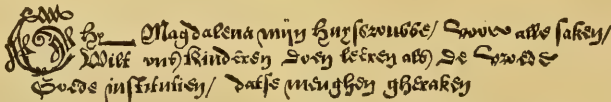 Ghy Magdalena mijn huysvrouwe / Voor alle saken /
Wilt ons kinderen doen leeren als de vroede
Goede institutien / datse meughen gheraken